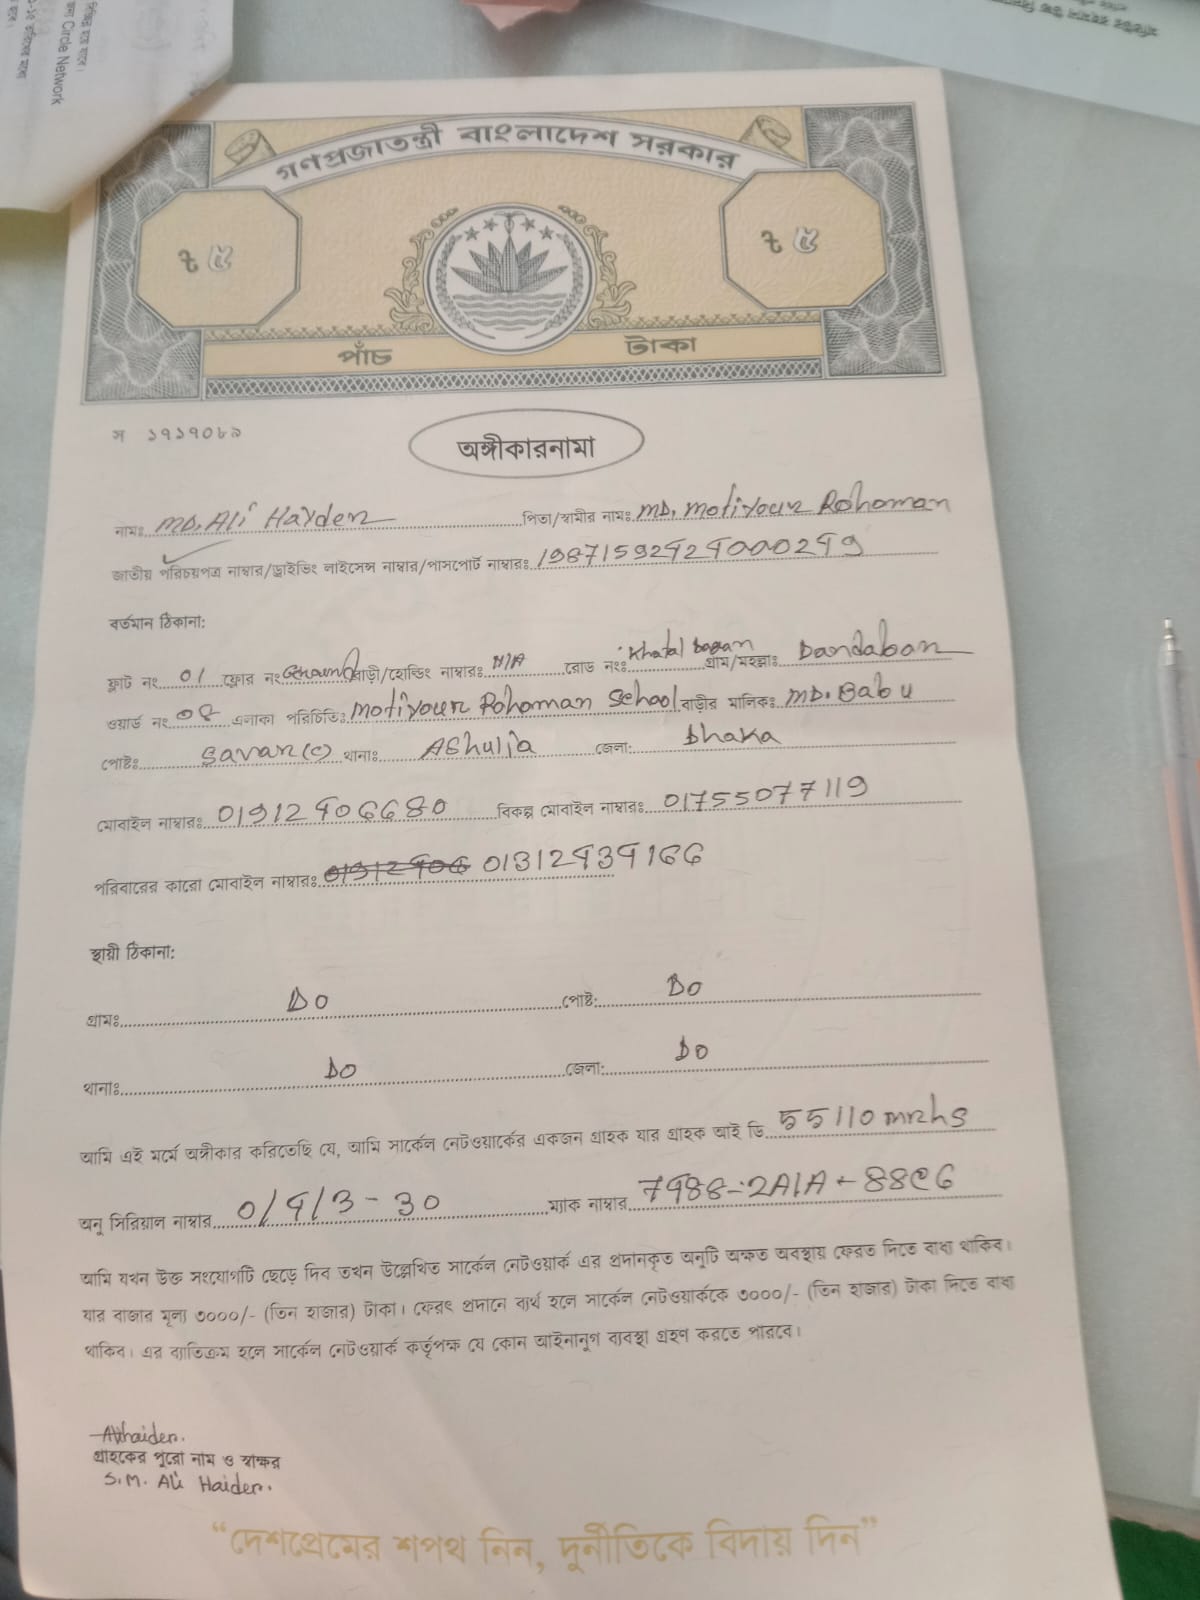 Circle Network
গণপ্রজাতন্ত্রী বাংলাদেশ সরকার
৳ ৫ ৳ ৫
পাঁচ টাকা
স ১৭১৭০৮৯
অঙ্গীকারনামা
নামঃ MD. Ali Hayder পিতা/স্বামীর নামঃ MD. Motiyour Rohoman
জাতীয় পরিচয়পত্র নাম্বার/ড্রাইভিং লাইসেন্স নাম্বার/পাসপোর্ট নাম্বারঃ
বর্তমান ঠিকানা:
ফ্লাট নং 01 ফ্লোর নং Ground বাড়ী/হোল্ডিং নাম্বারঃ N/A রোড নংঃ Khatal bagan গ্রাম/মহল্লাঃ Dandabon
ওয়ার্ড নং 08 এলাকা পরিচিতিঃ Motiyour Rohoman School বাড়ীর মালিকঃ MD. Babu
পোষ্টঃ Savar (c) থানাঃ AShulia জেলা: Dhaka
মোবাইল নাম্বারঃ 01912406680 বিকল্প মোবাইল নাম্বারঃ 01755077119
পরিবারের কারো মোবাইল নাম্বারঃ 01312434166
স্থায়ী ঠিকানা:
গ্রামঃ DO পোষ্ট: DO
থানাঃ DO জেলা: DO
আমি এই মর্মে অঙ্গীকার করিতেছি যে, আমি সার্কেল নেটওয়ার্কের একজন গ্রাহক যার গ্রাহক আই ডি 55110mrhs
অনু সিরিয়াল নাম্বার 0/4/3-30 ম্যাক নাম্বার
আমি যখন উক্ত সংযোগটি ছেড়ে দিব তখন উল্লেখিত সার্কেল নেটওয়ার্ক এর প্রদানকৃত অনুটি অক্ষত অবস্থায় ফেরত দিতে বাধ্য থাকিব।
যার বাজার মূল্য ৩০০০/- (তিন হাজার) টাকা। ফেরৎ প্রদানে ব্যর্থ হলে সার্কেল নেটওয়ার্ককে ৩০০০/- (তিন হাজার) টাকা দিতে বাধ্য
থাকিব। এর ব্যাতিক্রম হলে সার্কেল নেটওয়ার্ক কর্তৃপক্ষ যে কোন আইনানুগ ব্যবস্থা গ্রহণ করতে পারবে।
Alihaider.
গ্রাহকের পুরো নাম ও স্বাক্ষর
S.M. Ali Haider.
“দেশপ্রেমের শপথ নিন, দুর্নীতিকে বিদায় দিন”